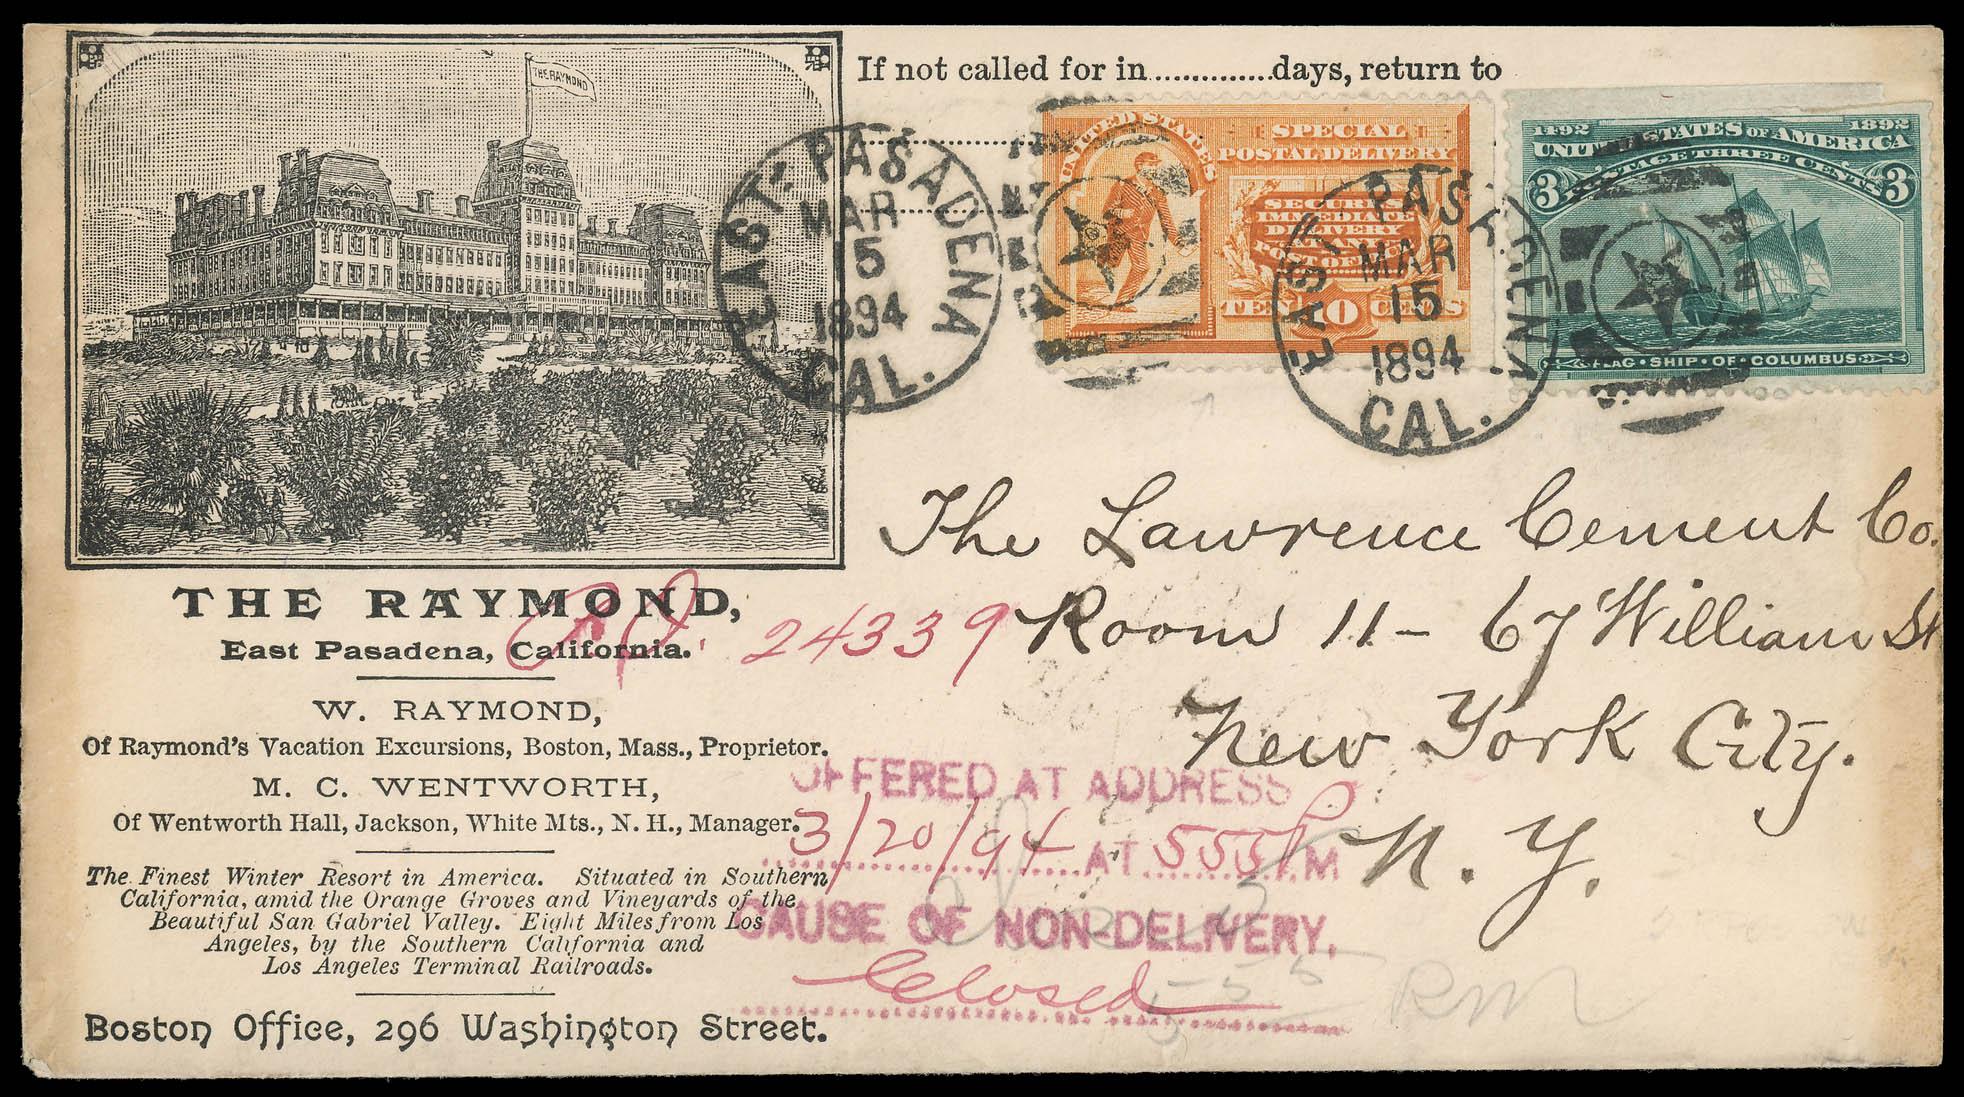 THE RAYMOND
If not called for in..............days, return to
EAST PASADENA
MAR
15
1894
CAL.
UNITED STATES
SPECIAL
POSTAL DELIVERY
SECURES
IMMEDIATE
DELIVERY
AT ANY
POST OFFICE
TEN 10 CENTS
EAST PASADENA
MAR
15
1894
CAL.
1492 1892
UNITED STATES OF AMERICA
3 POSTAGE THREE CENTS 3
FLAG·SHIP·OF·COLUMBUS
The Lawrence Cement Co.
Room 11- 67 William St
New York City.
N. Y.
THE RAYMOND,
East Pasadena, California.
24339
W. RAYMOND,
Of Raymond's Vacation Excursions, Boston, Mass., Proprietor.
M. C. WENTWORTH,
Of Wentworth Hall, Jackson, White Mts., N. H., Manager.
The Finest Winter Resort in America. Situated in Southern
California, amid the Orange Groves and Vineyards of the
Beautiful San Gabriel Valley. Eight Miles from Los
Angeles, by the Southern California and
Los Angeles Terminal Railroads.
Boston Office, 296 Washington Street.
OFFERED AT ADDRESS
3/20/94 AT 555 P M
CAUSE OF NON-DELIVERY.
Closed
5 55